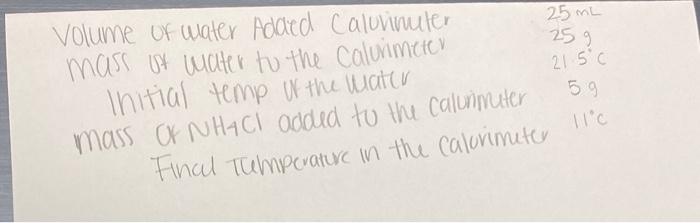 Volume of water Added Calorimeter 25 mL
mass of water to the Calorimeter 25 g
Initial temp of the water 21.5°C
mass of NH4Cl added to the calorimeter 5 g
Final Temperature in the calorimeter 11°C